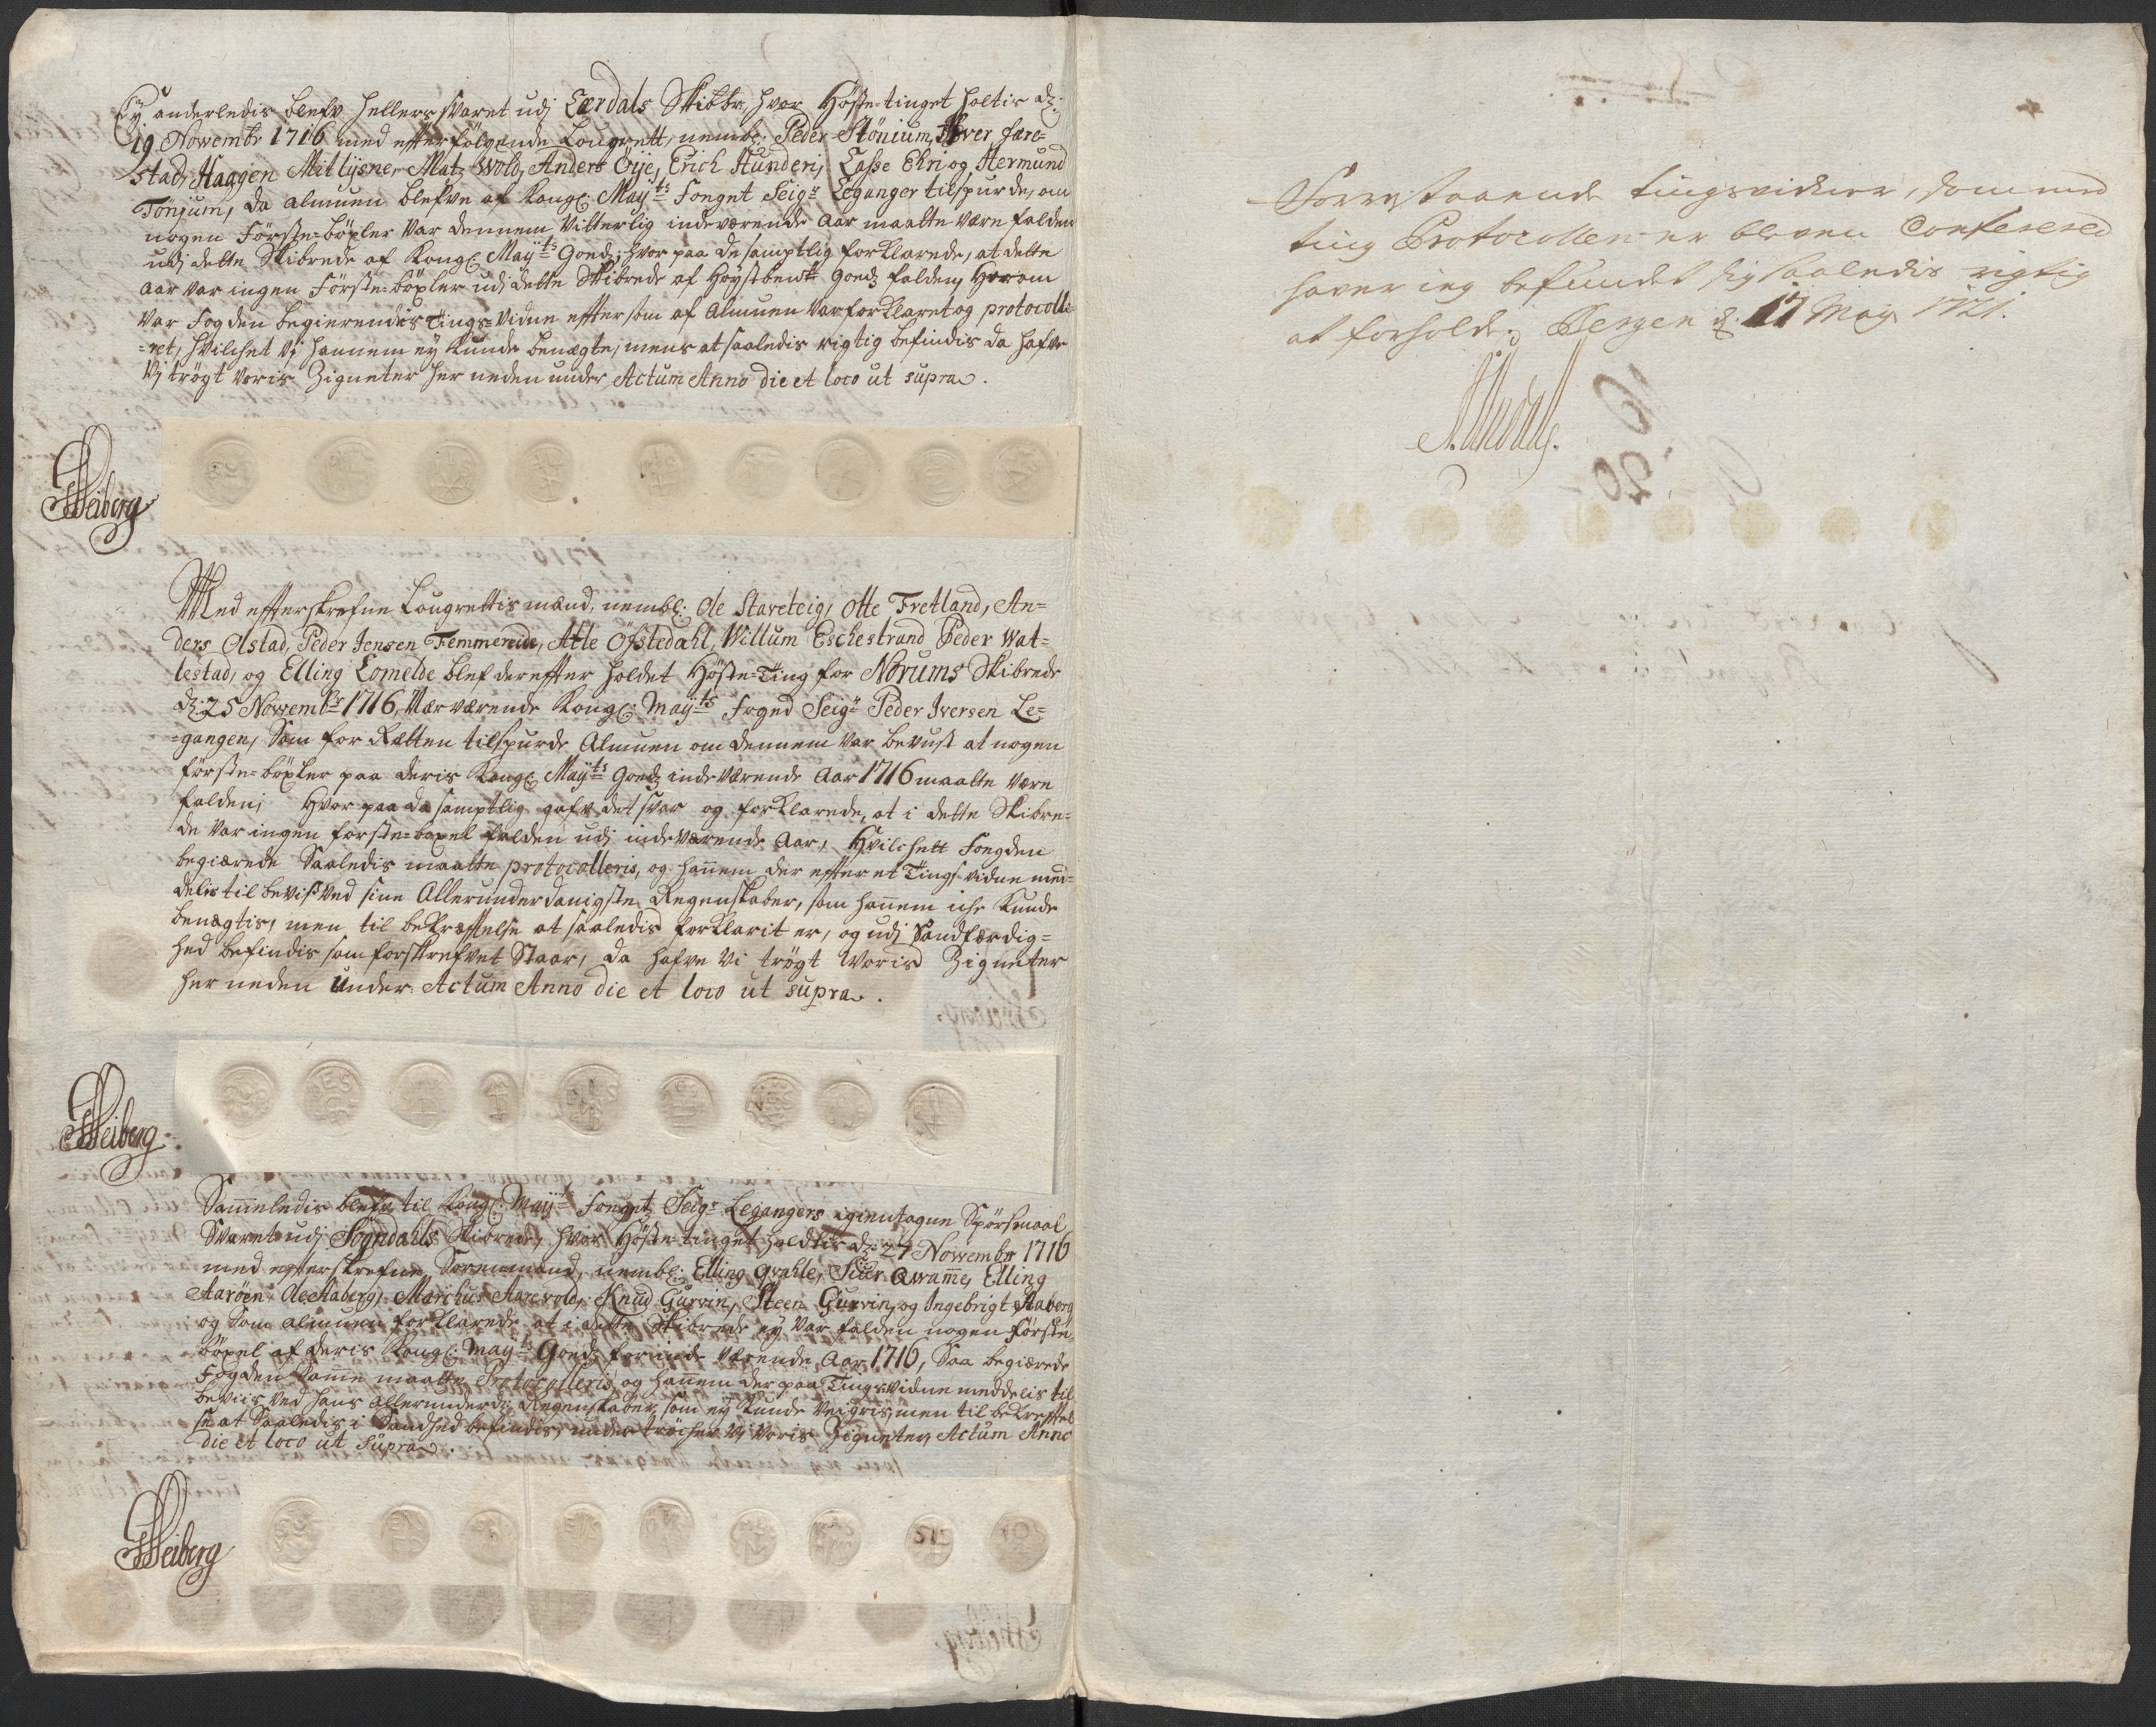 Ey anderledis blefv hellers svaret udj Lærdals Skibbr, hvor Höste-tinget holtis dz:
19 Novembr 1716 med efterfölgende Lougrett, nembl: Peder Stönium, Iver Fære-
stad, Haagen Mitlysne, Matz Wold, Anders Öye, Erich Hunderi, Lasse Ehri og Hermund
Tönjum, da almuen blefve af Kongl: Mayts Fouget Seigr Leganger tilspurde, om
nogen Förste-böxler var dennem vitterlig indeværende Aar maatte være falden
udj dette Skibrede af Kongl: Mayts Goedz; hvor paa de samptlig forklarede, at dette
Aar var ingen Förste-böxler udj dette Skibrede af Höystbemte Goedz falden, Hvorom
var Fogden begierendes Tings-Vidne efftersom af Almuen var forklaret og protocolle-
-ret, hvilchet vj hannem ey kunde benægte, mens at saaledis rigtig befindis da hafve
Vj trögt voris Zigneter her neden under Actum Anno die et loco ut supra.
Weiberg
Med efterskrefne Lougrettismænd, nembl: Ole Stareteig, Otte Fretland, An-
ders Olstad, Peder Jensen Femmereide, Atle Öfstedahl, Willum Eschestrand Peder Wat-
lestad, og Elling Lomelde blef derefter holdet Höste-Ting for Norums Skibrede
dz: 25 Novembr 1716, Nærværende Kongl: Mayts Foged Seigr Peder Iversen Le-
-gangen, Som for Retten tilspurde Almuen om dennem var bevust at nogen
förste-böxler paa deris Kongl Mayts Goedz indeværende Aar 1716 maatte være
falden; Hvor paa da samptlig gafv det svar og forklarede, at i dette Skibre-
de var ingen förste-böxel falden udj indeværende Aar, Hvilchett Fougden
begiærede Saaledis maatte protocolleris, og hannem der efter et Tings-vidne med-
delis til bevis ved sine Allerunderdanigste Regenskaber, som hannem iche kunde
benægtis, men til bekræftelse at saaledis forklarit er, og udj Sandfærdig-
hed befindis som forskrefvet Staar, da hafve Vi trögt Voris Zigneter
her neden Under. Actum Anno die et loco ut supra.
Weiberg
Sammeledis blefv til Kongl: Mayts Fougetz Seigr Legangers igientagne Spörsmaal
Svaret udj Sögndahls Skibrede, hvor Höste-tinget holdtis dz: 27 Novembr 1716
med efterskrefne Sorenmænd, nembl: Elling Qvahle, Siur Qvamme, Elling
Aaröen, Ole Aaberg, Marchus Aarevold, Knud Gurvin, Steen Gurvin, og Ingebrigt Aaberg
og Som almuen forklarede at i dette Skibrede ey var falden nogen förste
böxel af deris Kongl: Mayts Goedz for inde værende Aar 1716, Saa begiærede
Fogden Samme maatte Protocolleris og hannem der paa Tingsvidne meddelis til
beviis ved hans allerunderd: Regenskaber, som ey kunde veigris, men til bekreftel-
se at Saaledis i Sandhed befindis, under trÿcher vj Voris Zigneter, Actum Anno
die et loco ut supra.
Weiberg
Forrestaaende tingsvidner, som med
ting Protocollen er bleven Conferered
haver jeg befunden sig saaledis rigtig
at forholde; Bergen d: 17 May 1721.